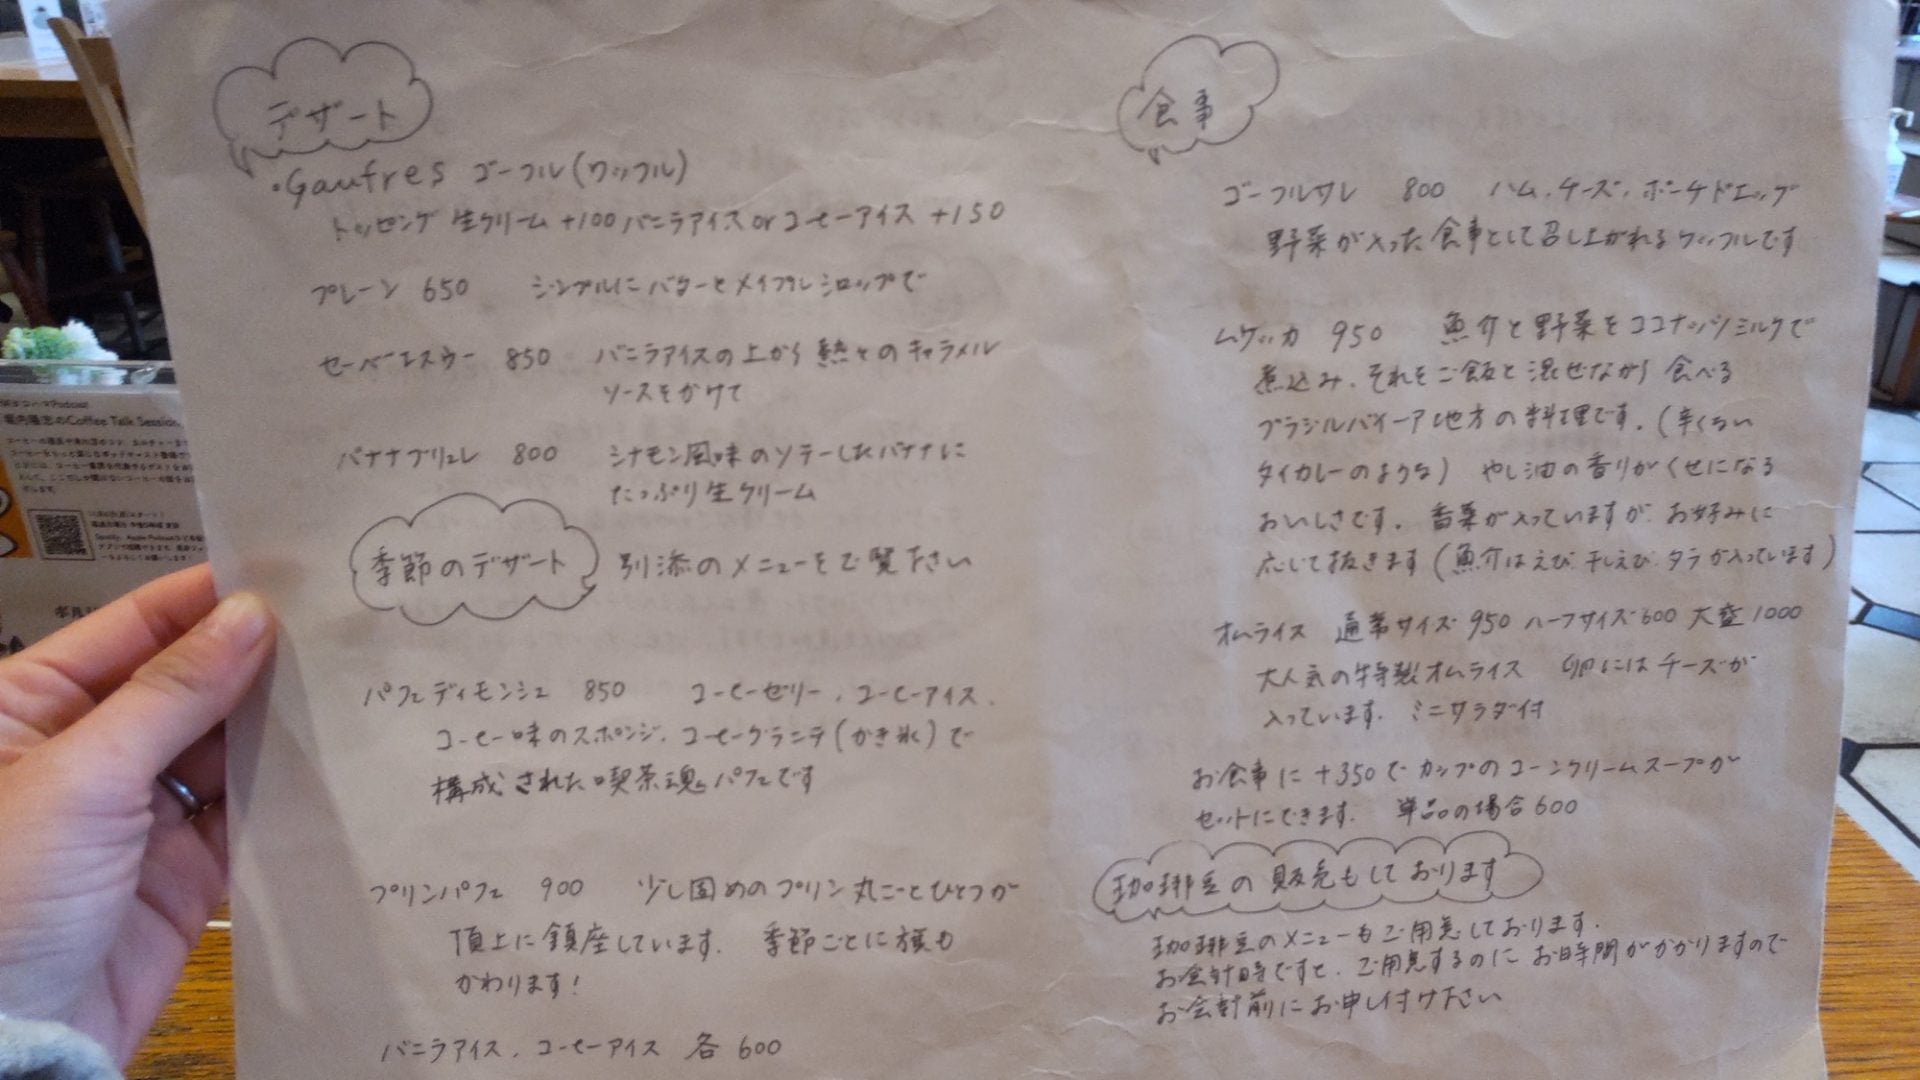 デザート
・Gaufres ゴーフル(ワッフル)
トッピング 生クリーム +100 バニラアイス or コーヒーアイス +150
プレーン 650 シンプルにバターとメイプルシロップで
セーバエスウー 850 バニラアイスの上から熱々のキャラメル
ソースをかけて
バナナブリュレ 800 シナモン風味のソテーしたバナナに
たっぷり生クリーム
季節のデザート 別添のメニューをご覧下さい
パフェ ディモンシュ 850 コーヒーゼリー、コーヒーアイス、
コーヒー味のスポンジ、コーヒーグラニテ(かき氷)で
構成された喫茶魂パフェです
プリンパフェ 900 少し固めのプリン丸ごとひとつが
頂上に鎮座しています。 季節ごとに旗も
かわります!
バニラアイス、コーヒーアイス 各 600
食事
ゴーフルサレ 800 ハム、チーズ、ポーチドエッグ
野菜が入った食事として召し上がれるワッフルです
ムケッカ 950 魚介と野菜をココナッツミルクで
煮込み、それをご飯と混ぜながら食べる
ブラジルバイーア地方の料理です。(辛くない
タイカレーのような) やし油の香りがくせになる
おいしさです。 香菜が入っていますが、お好みに
応じて抜きます(魚介はえび、干しえび、タラが入っています)
オムライス 通常サイズ 950 ハーフサイズ 600 大盛 1000
大人気の特製オムライス 卵にはチーズが
入っています。 ミニサラダ付
お食事に +350で カップのコーンクリームスープが
セットにできます。 単品の場合 600
珈琲豆の販売もしております
珈琲豆のメニューもご用意しております。
お会計時ですと、ご用意するのにお時間がかかりますので
お会計前にお申し付け下さい
堀内隆志のCoffee Talk Session